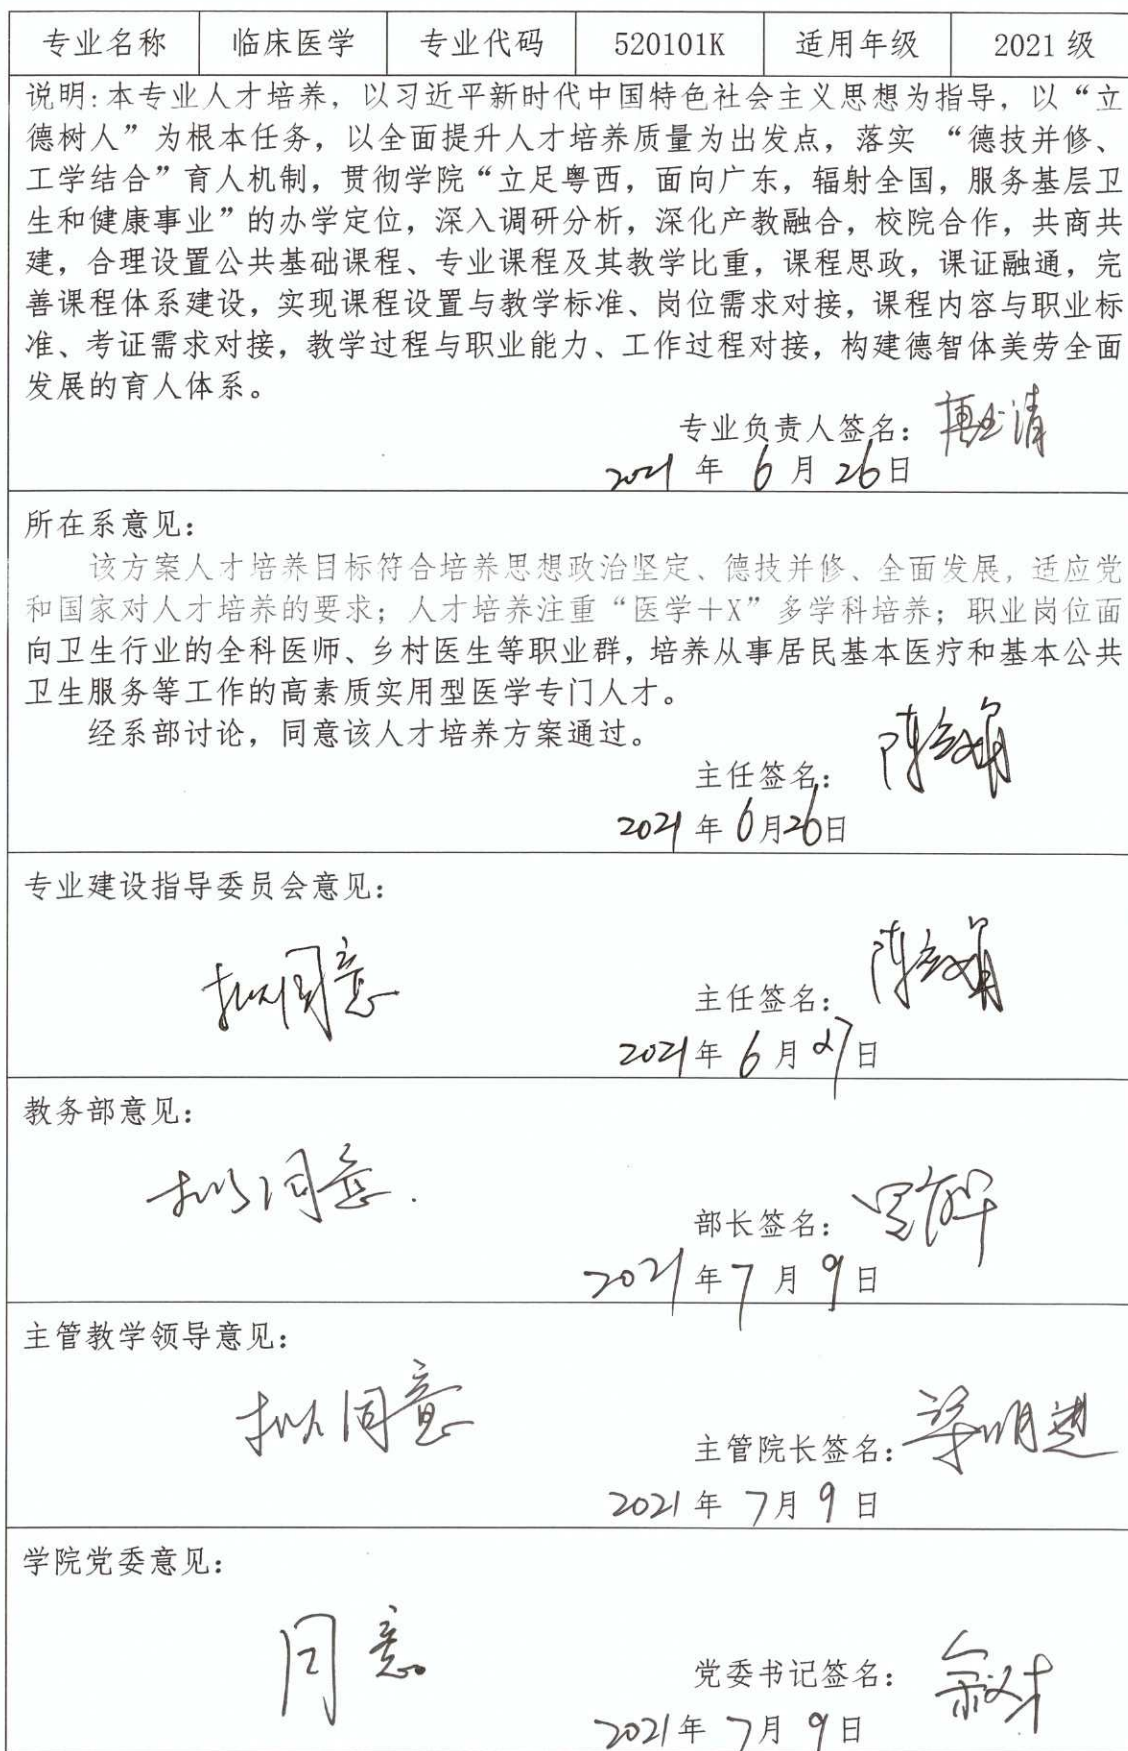 专业名称 临床医学 专业代码 520101K 适用年级 2021级
说明:本专业人才培养，以习近平新时代中国特色社会主义思想为指导，以“立
德树人”为根本任务，以全面提升人才培养质量为出发点，落实 “德技并修、
工学结合”育人机制，贯彻学院“立足粤西，面向广东，辐射全国，服务基层卫
生和健康事业”的办学定位，深入调研分析，深化产教融合，校院合作，共商共
建，合理设置公共基础课程、专业课程及其教学比重，课程思政，课证融通，完
善课程体系建设，实现课程设置与教学标准、岗位需求对接，课程内容与职业标
准、考证需求对接，教学过程与职业能力、工作过程对接，构建德智体美劳全面
发展的育人体系。
专业负责人签名：
2021 年 6 月 26日
所在系意见：
该方案人才培养目标符合培养思想政治坚定、德技并修、全面发展，适应党
和国家对人才培养的要求；人才培养注重“医学+X”多学科培养；职业岗位面
向卫生行业的全科医师、乡村医生等职业群，培养从事居民基本医疗和基本公共
卫生服务等工作的高素质实用型医学专门人才。
经系部讨论，同意该人才培养方案通过。
主任签名：
2021 年 6月26日
专业建设指导委员会意见：
拟同意
主任签名：
2021年 6 月 27日
教务部意见：
拟同意.
部长签名：
2021年 7 月 9日
主管教学领导意见：
拟同意
主管院长签名：
2021 年 7月 9 日
学院党委意见：
同意
党委书记签名：
2021年 7月 9日